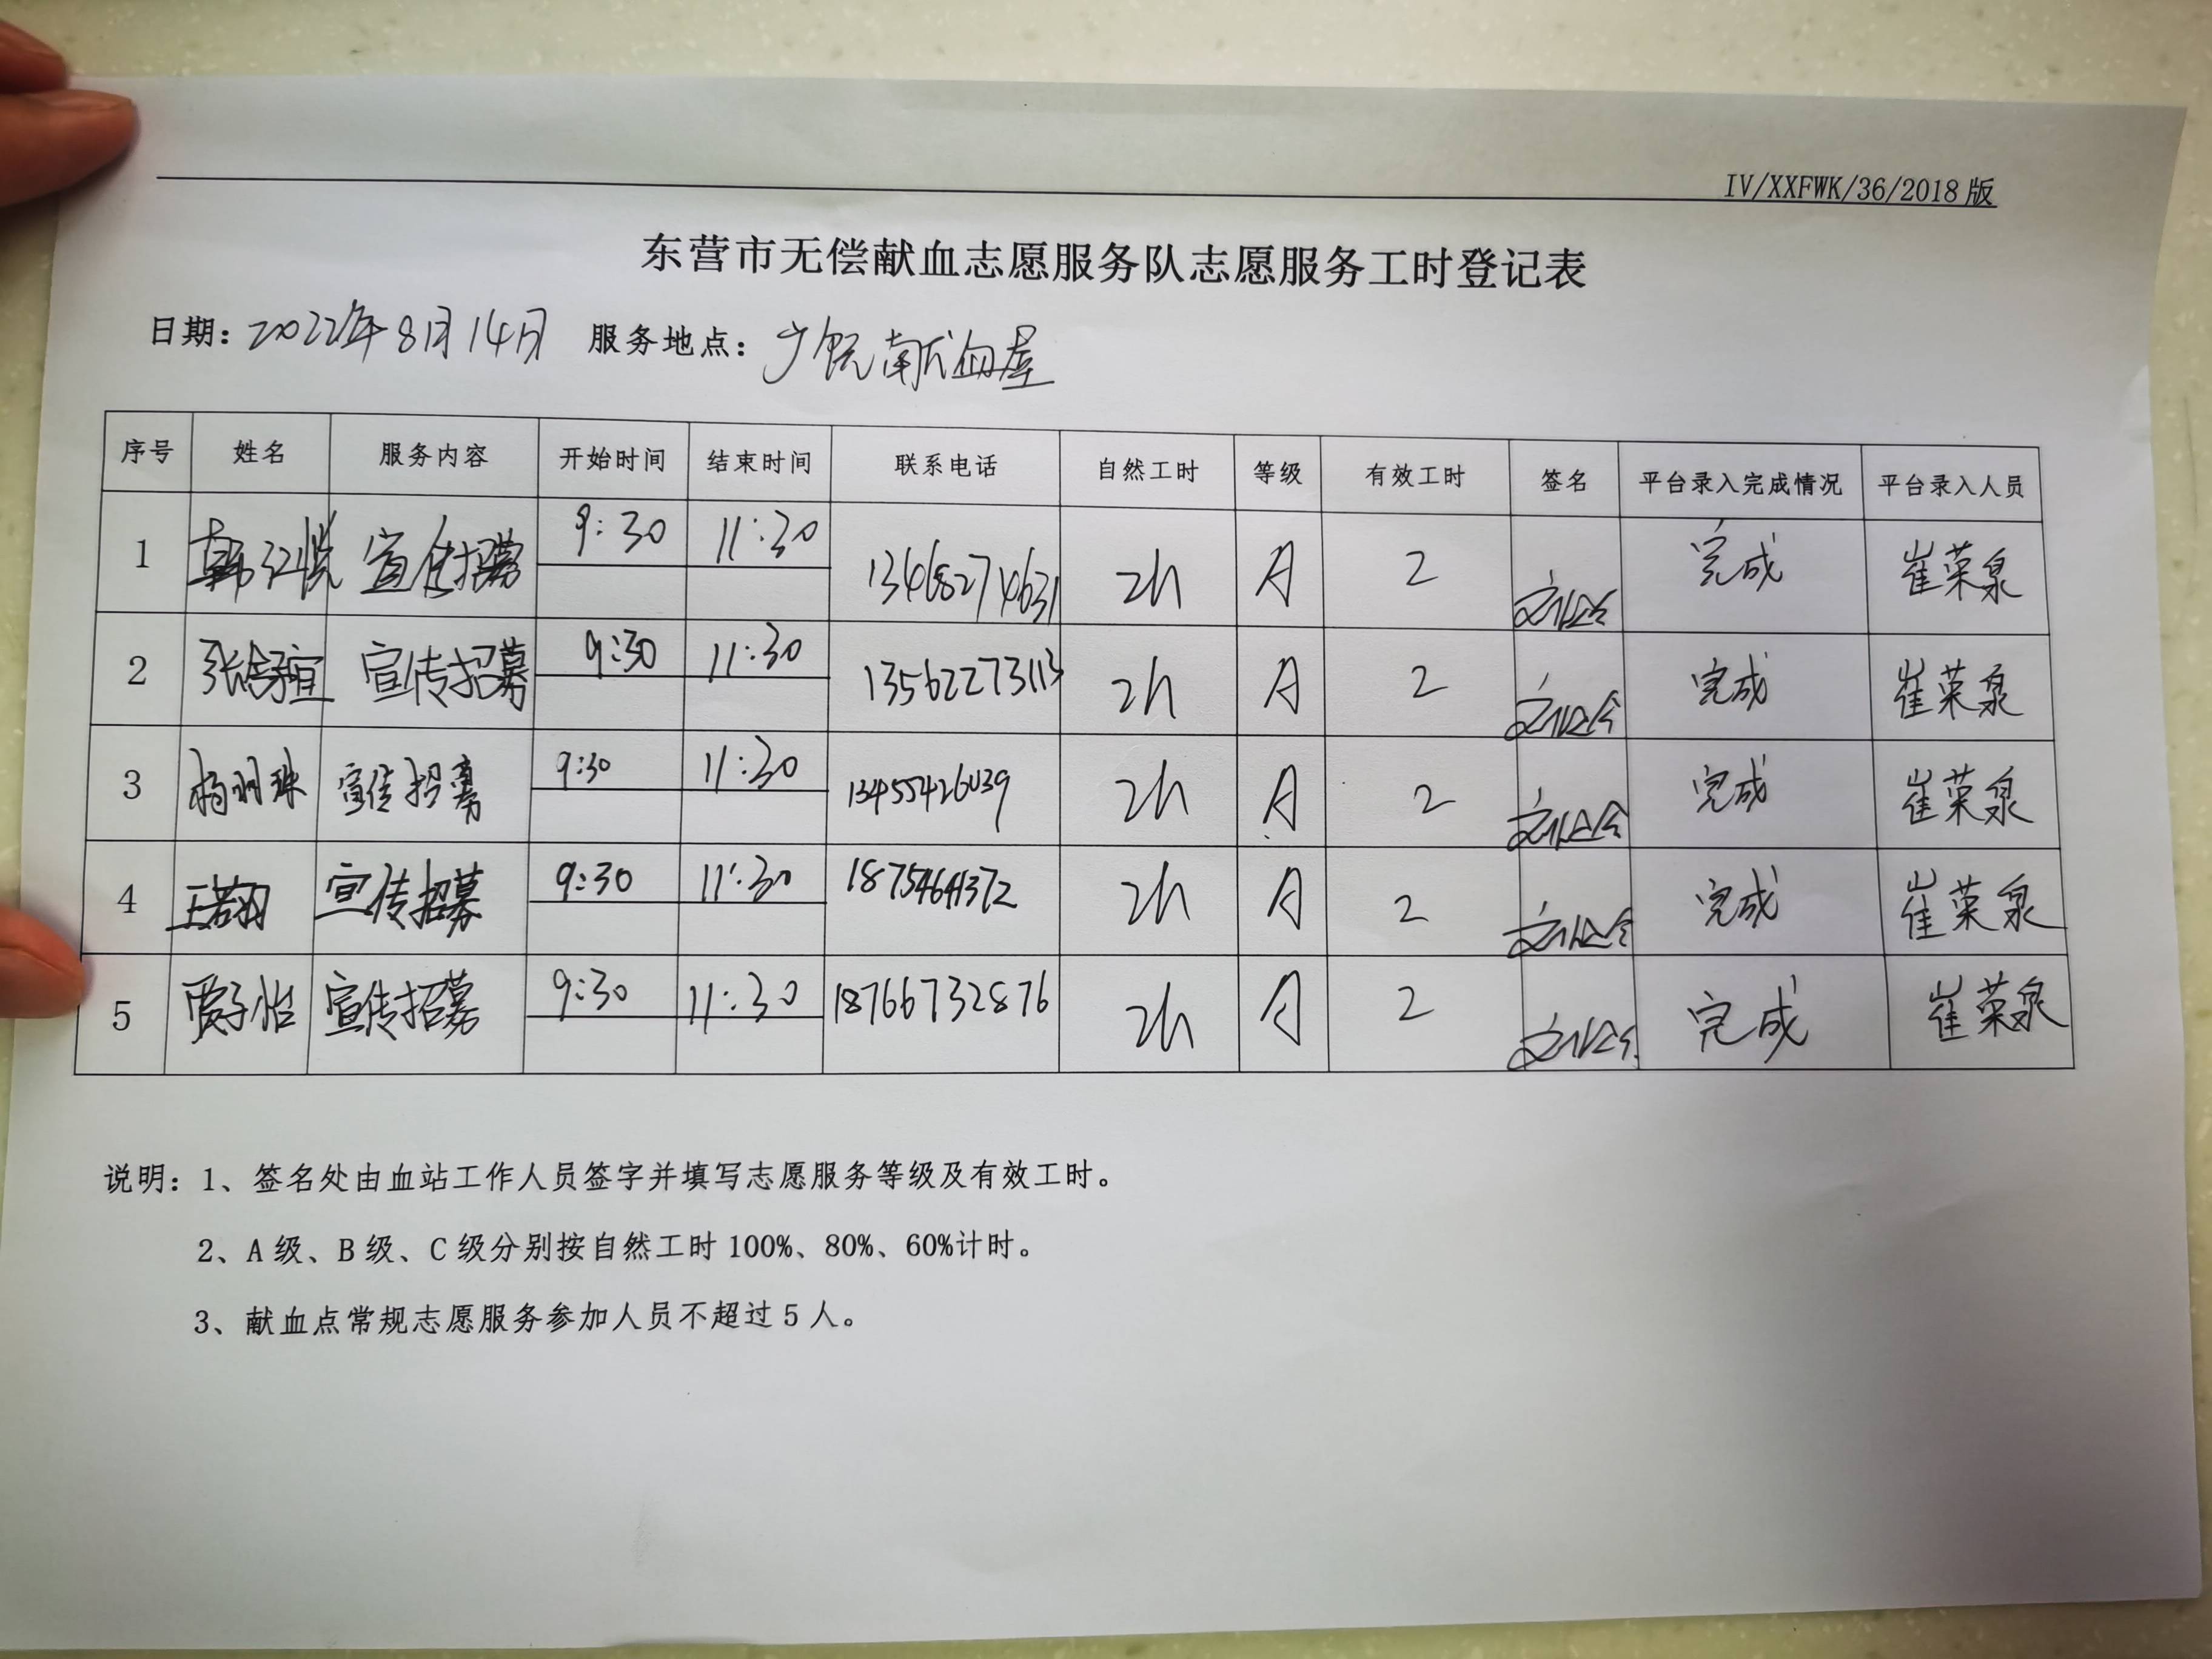 IV/XXFWK/36/2018版
东营市无偿献血志愿服务队志愿服务工时登记表
日期：2022年8月14日 服务地点：广饶献血屋
序号 姓名 服务内容 开始时间 结束时间 联系电话 自然工时 等级 有效工时 签名 平台录入完成情况 平台录入人员
1 韩红悦 宣传招募 9:30 11:30 13468274631 2h A 2 完成 崔荣泉
2 宣传招募 9:30 11:30 13562273113 2h A 2 完成 崔荣泉
3 宣传招募 9:30 11:30 13455426039 2h A 2 完成 崔荣泉
4 宣传招募 9:30 11:30 18754641372 2h A 2 完成 崔荣泉
5 贾子怡 宣传招募 9:30 11:30 18766732876 2h A 2 完成 崔荣泉
说明：1、签名处由血站工作人员签字并填写志愿服务等级及有效工时。
2、A级、B级、C级分别按自然工时100%、80%、60%计时。
3、献血点常规志愿服务参加人员不超过5人。